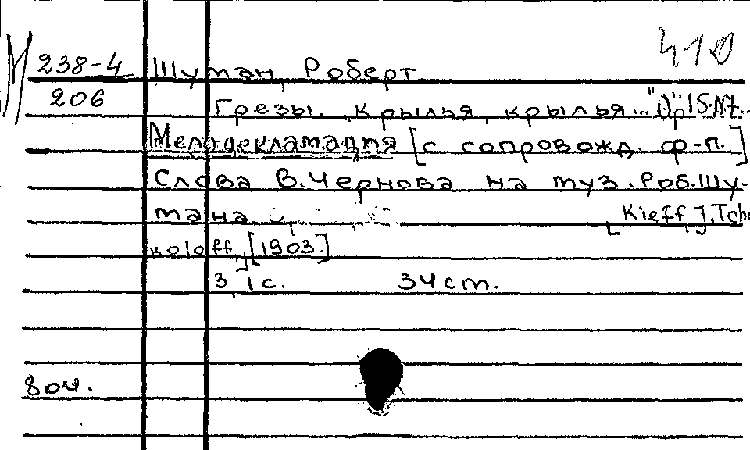 М 410
238-4 Шуман, Роберт
206 Грезы. „Крылья, крылья..." Op. 15. N7.
Мелодекламация [с сопровожд. ф-п.]
Слова В. Чернова на муз. Роб. Шу-
мана. [Kieff], Tch
koloff, [1903.]
3, 1 с. 34 см.
80ч.